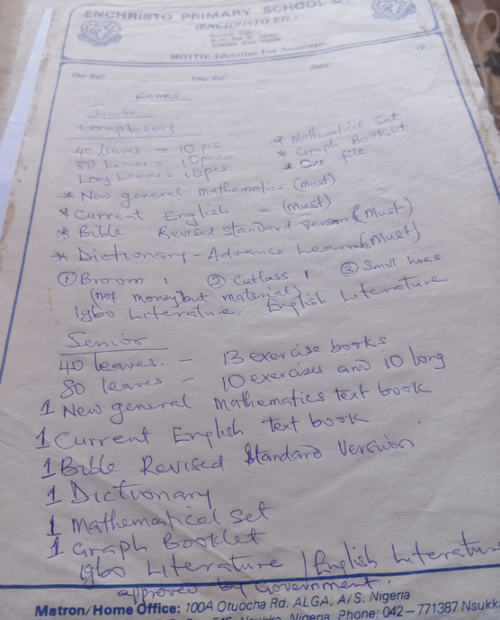 ENCHRISTO PRIMARY SCHOOL
(ENCHRISTO ED.)
MOTTO: Education For
Our Ref: Your Ref: Date: 19
Books
Junior
Compulsory
40 leaves = 10 pcs * Mathematical Set
80 leaves = 10pcs * Graph Booklet
Long leaves = 10pcs * One file
* New general Mathematics (must)
* Current English - (must)
* Bible Revised Standard Version (Must)
* Dictionary - Advance Learner (Must)
① Broom 1 ② Cutlass 1 ③ Small hoes
(not money but material)
Igbo Literature. English Literature
Senior
40 leaves. - 13 exercise books
80 leaves - 10 exercises and 10 long
1 New general Mathematics text book
1 Current English text book
1 Bible Revised Standard Version
1 Dictionary
1 Mathematical Set
1 Graph Booklet
Igbo Literature / English Literature
approved by Government.
Matron/Home Office: 100A Otuocha Rd. ALGA, A/S. Nigeria
Nsukka, Nigeria, Phone: 042-771387 Nsukka